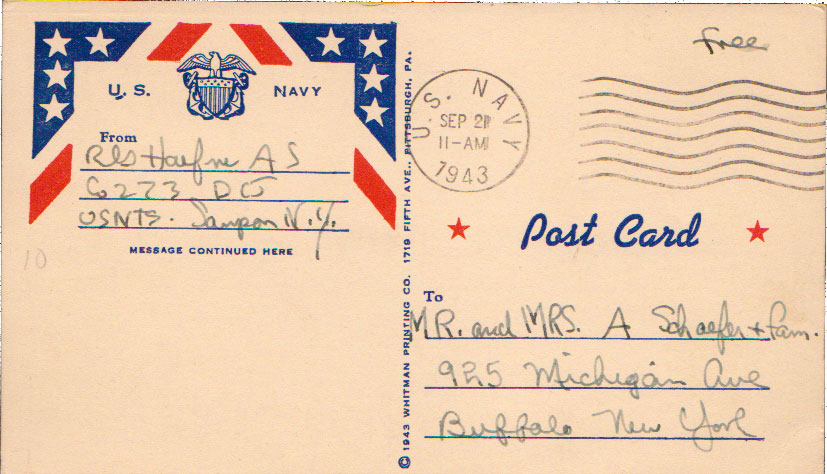 Free
U.S. NAVY
From
A S
G 273 D U
USNTS. Sampson N.Y.
MESSAGE CONTINUED HERE
10
© 1943 WHITMAN PRINTING CO. 1719 FIFTH AVE., PITTSBURGH, PA.
U.S. NAVY
SEP 21
11-AM
1943
Post Card
To
MR. and MRS. A Schaefer + Fam.
925 Michigan Ave
Buffalo New York